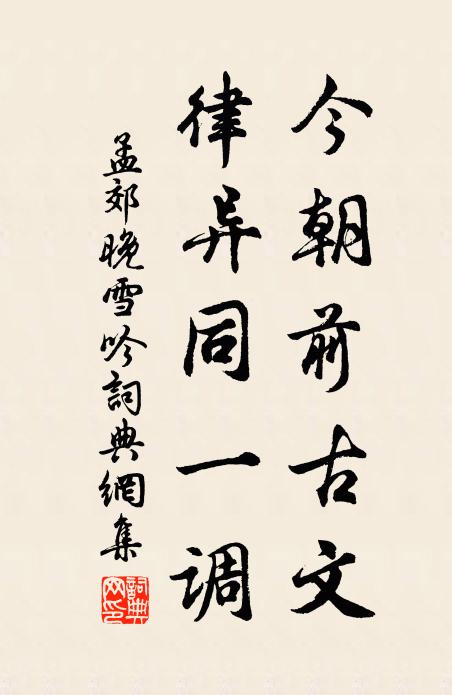 今朝前古文
律异同一调
孟郊晚雪吟詞典網集
詞典网印